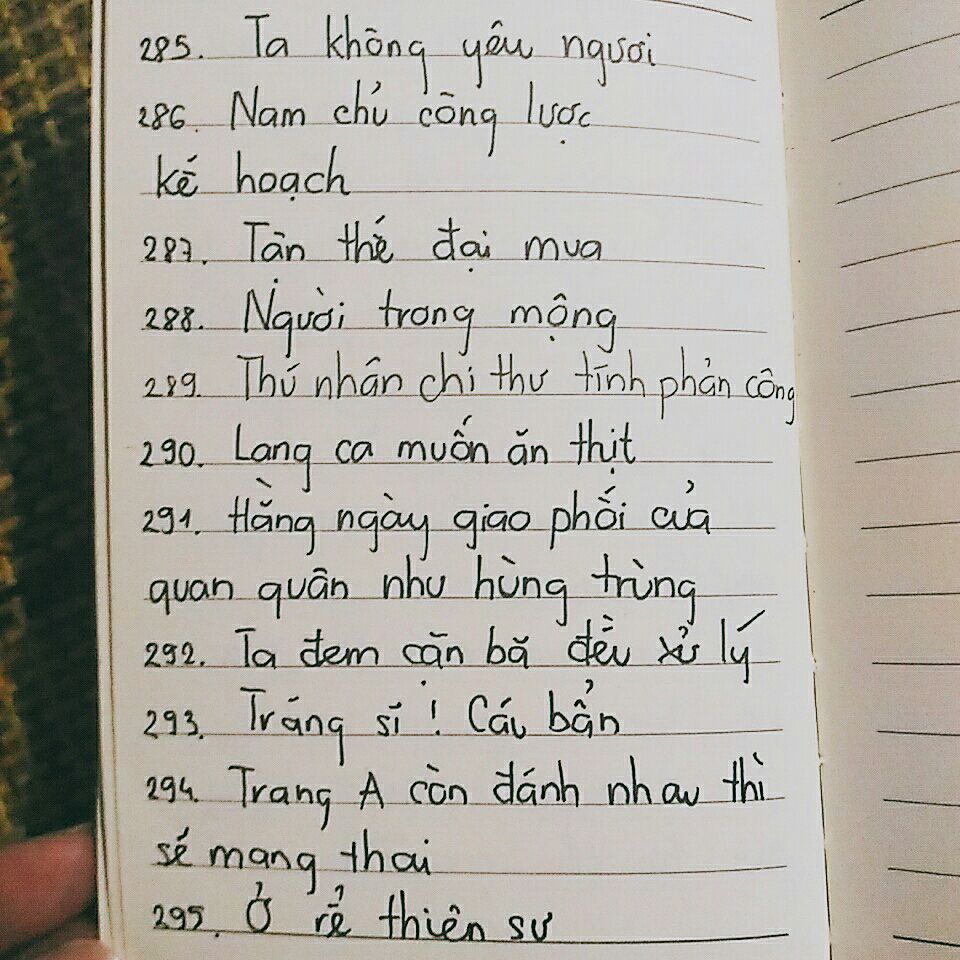 285. Ta không yêu ngươi
286. Nam chủ công lược
kế hoạch
287. Tận thế đại mưa
288. Người trong mộng
289. Thú nhân chi thư tính phản công
290. Lang ca muốn ăn thịt
291. Hằng ngày giao phối của
quan quân như hùng trùng
292. Ta đem cặn bã đều xử lý
293. Tráng sĩ! Cáu bẩn
294. Trang A còn đánh nhau thì
sẽ mang thai
295. Ở rể thiên sư